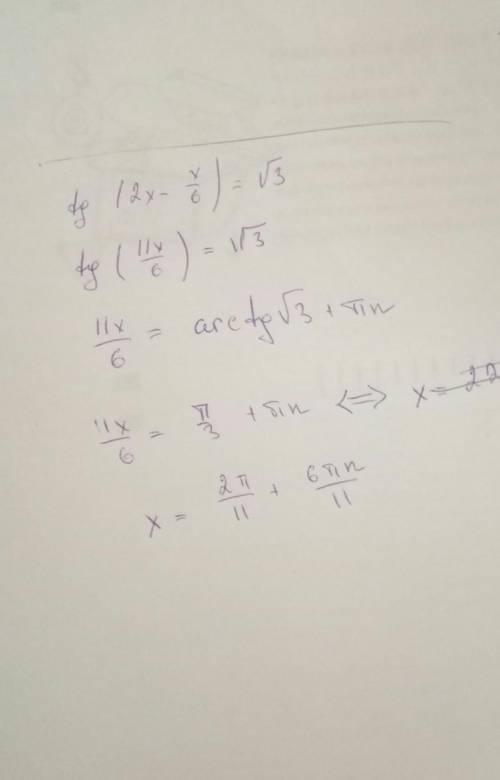 tg (2x - x/6) = √3
tg (11x/6) = √3
11x/6 = arctg√3 + πn
11x/6 = π/3 + πn <=> x = 22
x = 2π/11 + 6πn/11